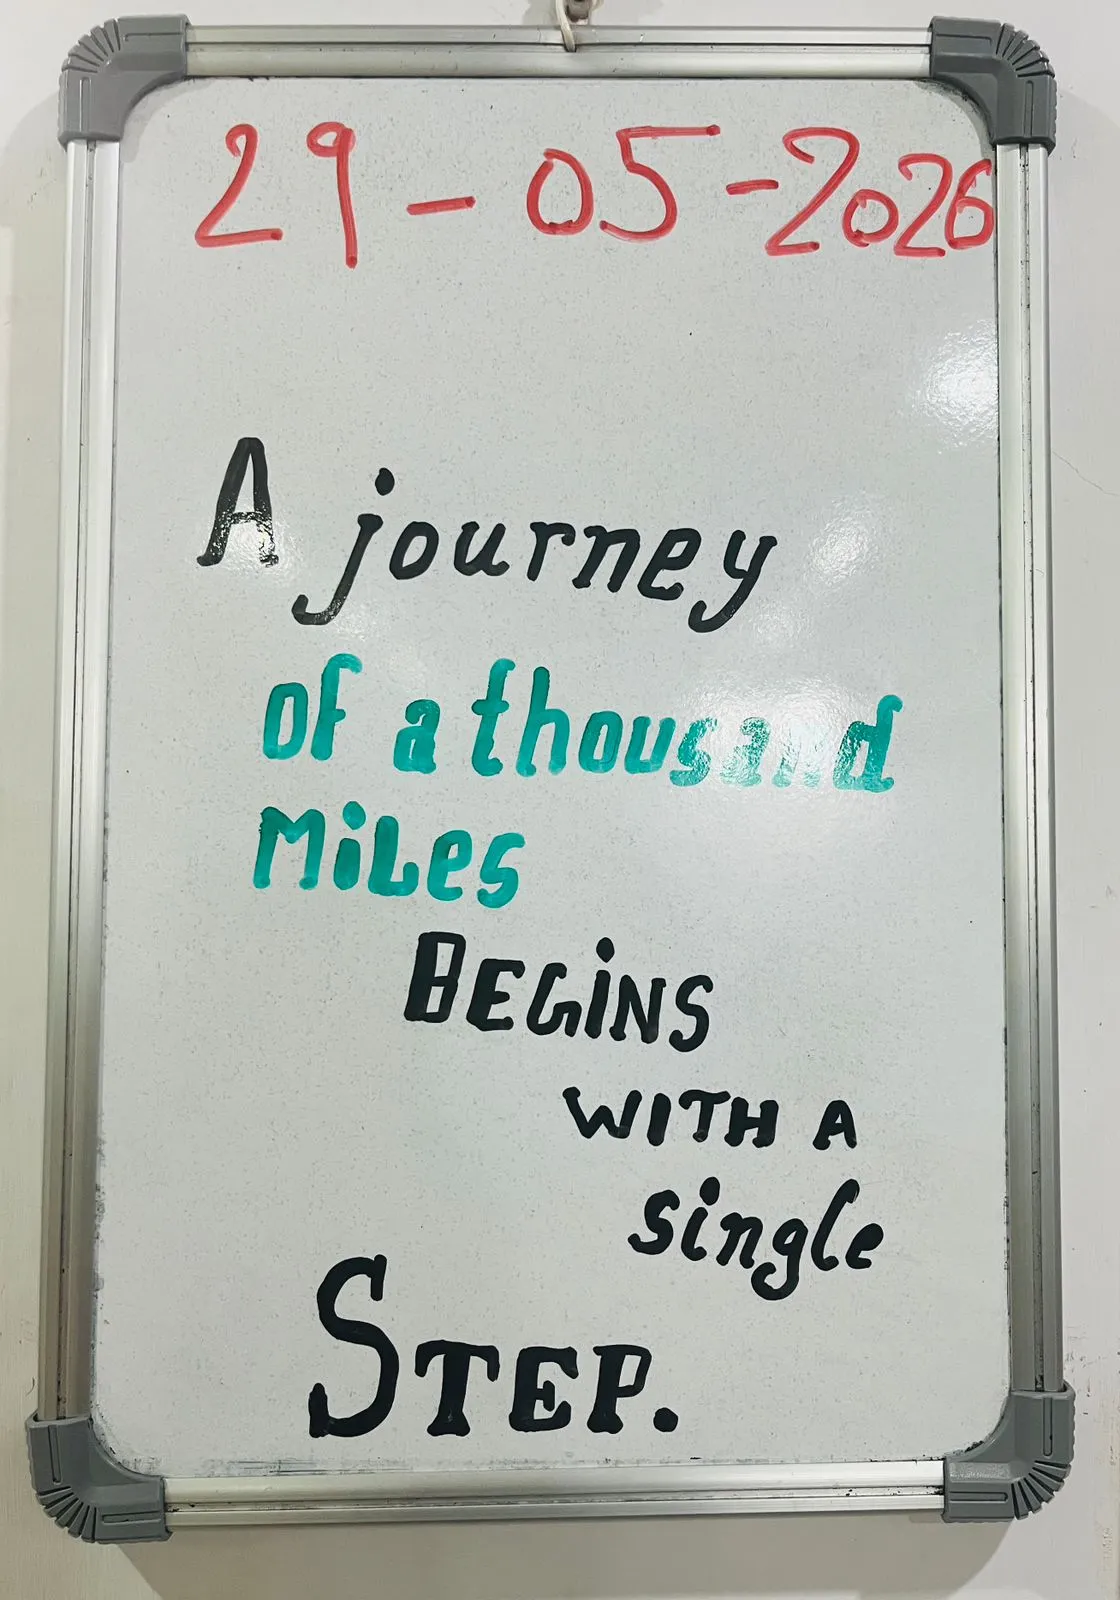 29-05-2026
A journey
of a thousand
MiLes
BEGiNS
WITH A
single
STEP.